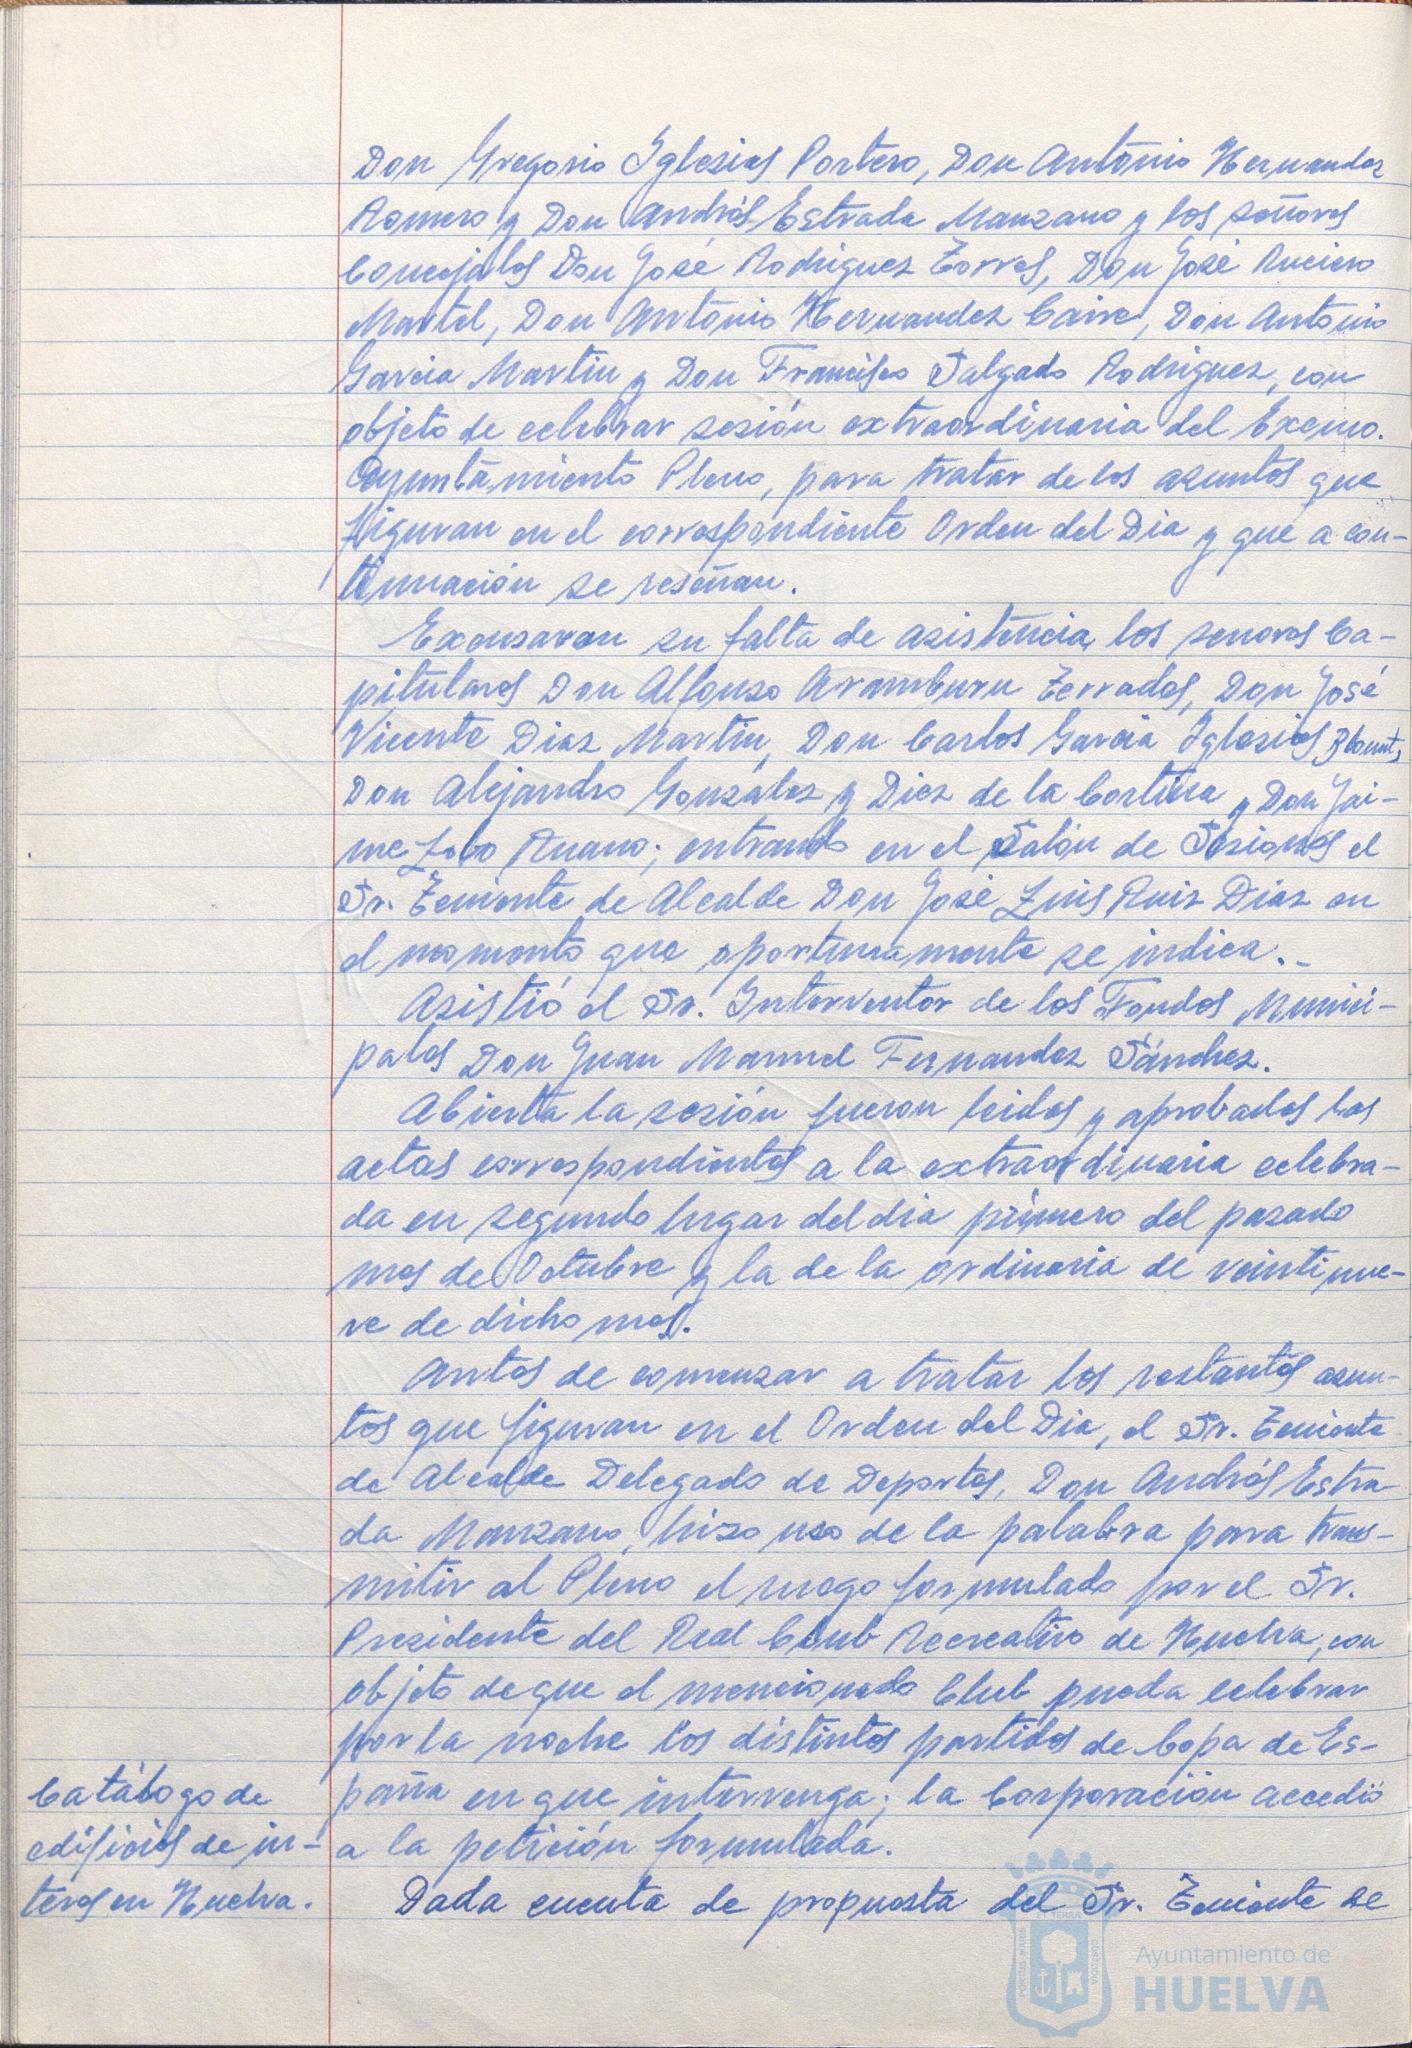 Don Gregorio Iglesias Portero, Don Antonio Hernandez
Romero y Don Andrés Estrada Manzano y los señores
Concejales Don José Rodriguez Torres, Don José Ruciero
Martel, Don Antonio Hernandez Caire, Don Antonio
Garcia Martin y Don Francisco Salgado Rodriguez, con
objeto de celebrar sesión extraordinaria del Excmo.
Ayuntamiento Pleno, para tratar de los asuntos que
figuran en el correspondiente Orden del Dia y que a con-
tinuación se reseñan.
Excusaron su falta de asistencia, los senores Ca-
pitulares Don Alfonso Aramburu Terrades, Don José
Vicente Diaz Martin, Don Carlos Garcia Iglesias,
Don Alejandro González y Diez de la Cortina y Don Jai-
me Lobo Ruano; entrando en el Salón de Sesiones el
Sr. Teniente de Alcalde Don José Luis Ruiz Diaz en
el momento que oportunamente se indica.-
Asistió el Sr. Interventor de los Fondos Munici-
pales Don Juan Manuel Fernandez Sánchez.
Abierta la sesión fueron leidas y aprobadas las
actas correspondientes a la extraordinaria celebra-
da en segundo lugar del dia primero del pasado
mes de Octubre y la de la ordinaria de veintinue-
ve de dicho mes.
Antes de comenzar a tratar los restantes asun-
tos que figuran en el Orden del Dia, el Sr. Teniente
de Alcalde Delegado de Deportes, Don Andrés Estra
da Manzano, hizo uso de la palabra para trans-
mitir al Pleno el ruego formulado por el Sr.
Presidente del Real Club Recreativo de Huelva, con
objeto de que el mencionado Club pueda celebrar
por la noche los distintos partidos de Copa de Es-
paña en que intervenga; la Corporación accedió
a la petición formulada.
Catálogo de
edificios de in-
teres en Huelva.
Dada cuenta de propuesta del Sr. Teniente se
Ayuntamiento de
HUELVA